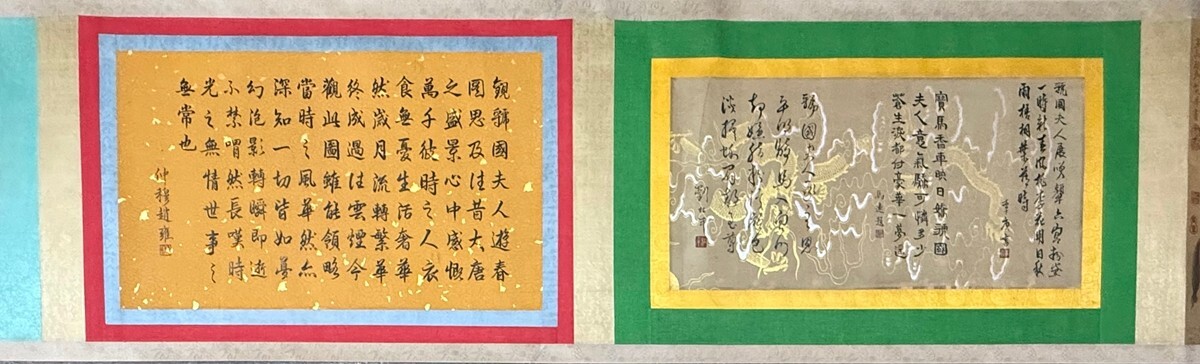 虢國夫人
一時彩春風桃李花開日秋
雨梧桐葉落時
寶馬香車映日輝虢國
夫人意氣驕可憐多少
蒼生淚都付豪華一夢遙
虢國夫人承主恩
平明騎馬入宮門
却嫌脂粉污顏色
淡掃蛾眉朝至尊
觀虢國夫人遊春
圖思及往昔大唐
之盛景心中感慨
萬千彼時之人衣
食無憂生活奢華
然歲月流轉繁華
終成過往雲煙今
觀此圖雖能領略
當時之風華然亦
深知一切皆如夢
幻泡影轉瞬即逝
不禁喟然長嘆時
光之無情世事之
無常也
仲穆趙雍